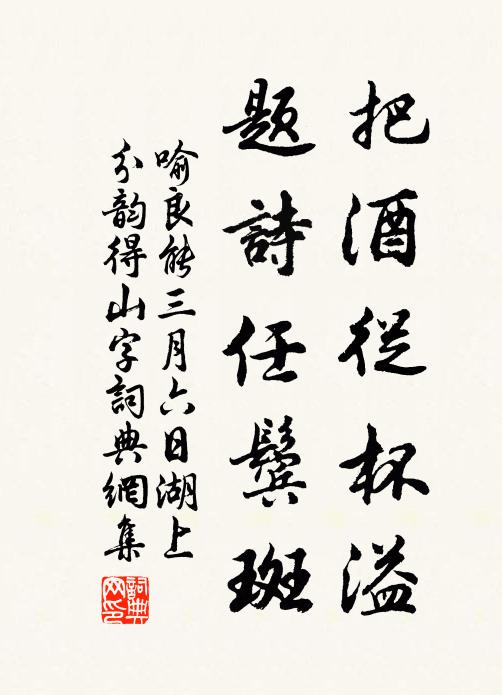 把酒從杯溢
題詩任鬢斑
喻良能三月六日湖上
分韵得山字詞典網集
詞典網印